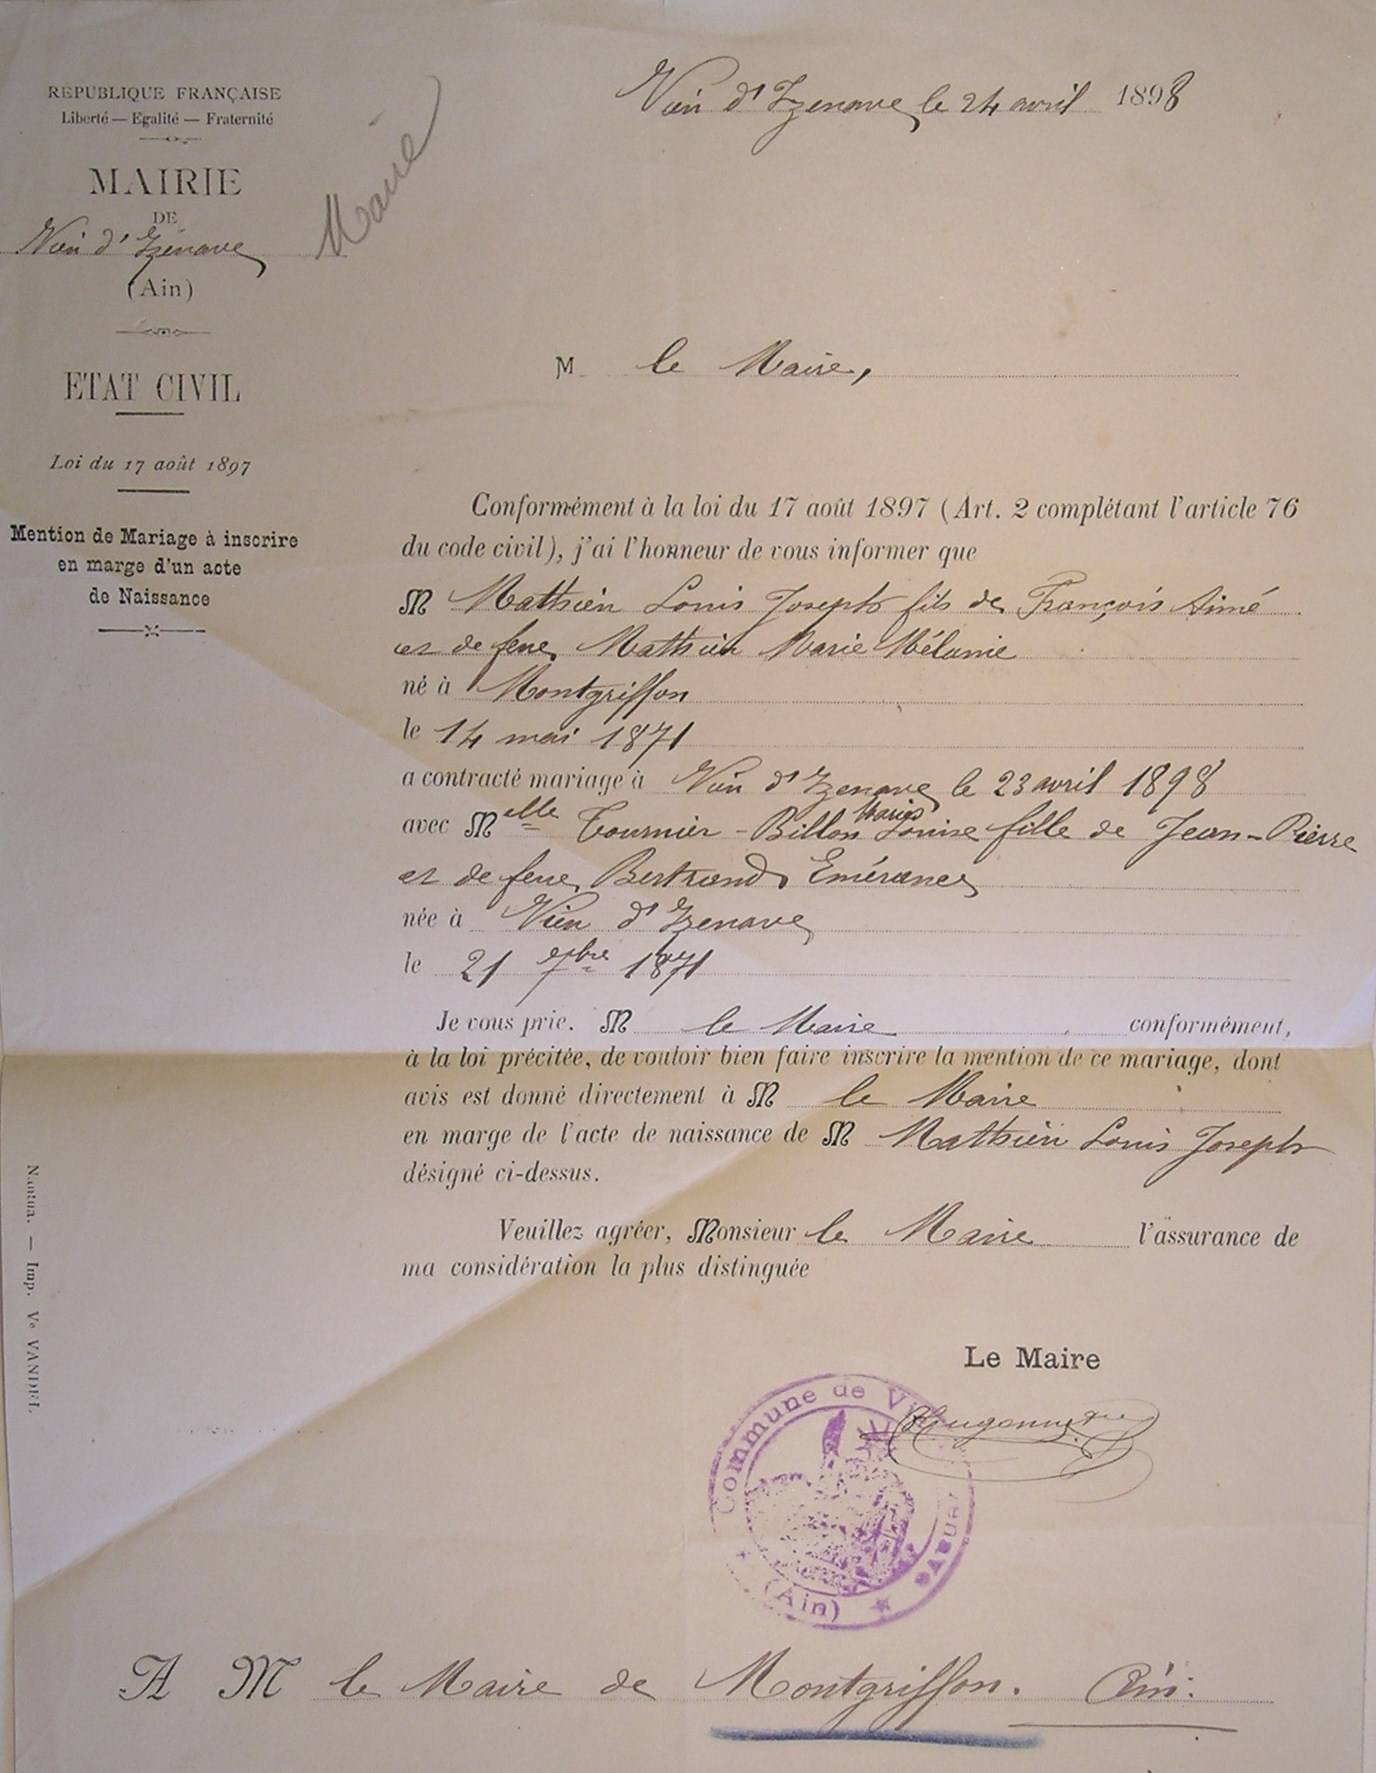 RÉPUBLIQUE FRANÇAISE
Liberté — Egalité — Fraternité
MAIRIE
DE
Vieu d'Izenave
(Ain)
ETAT CIVIL
Loi du 17 août 1897
Mention de Mariage à inscrire
en marge d'un acte
de Naissance
Mairie
Vieu d'Izenave, le 24 avril 1898
M le Maire,
Conformément à la loi du 17 août 1897 (Art. 2 complétant l'article 76
du code civil), j'ai l'honneur de vous informer que
M Mathieu Louis Joseph fils de François Aimé
et de feue Mathieu Marie Mélanie
né à Montgriffon
le 14 mai 1871
a contracté mariage à Vieu d'Izenave le 23 avril 1898
avec Melle Tournier-Billon Marie Louise fille de Jean-Pierre
et de feue Bertrand Emérance
née à Vieu d'Izenave
le 21 7bre 1871
Je vous prie. M le Maire conformément,
à la loi précitée, de vouloir bien faire inscrire la mention de ce mariage, dont
avis est donné directement à M le Maire
en marge de l'acte de naissance de M Mathieu Louis Joseph
désigné ci-dessus.
Veuillez agréer, Monsieur le Maire l'assurance de
ma considération la plus distinguée
Le Maire
Commune de
(Ain)
A M le Maire de Montgriffon. Ain.
Nantua. — Imp. Ve VANDEL.